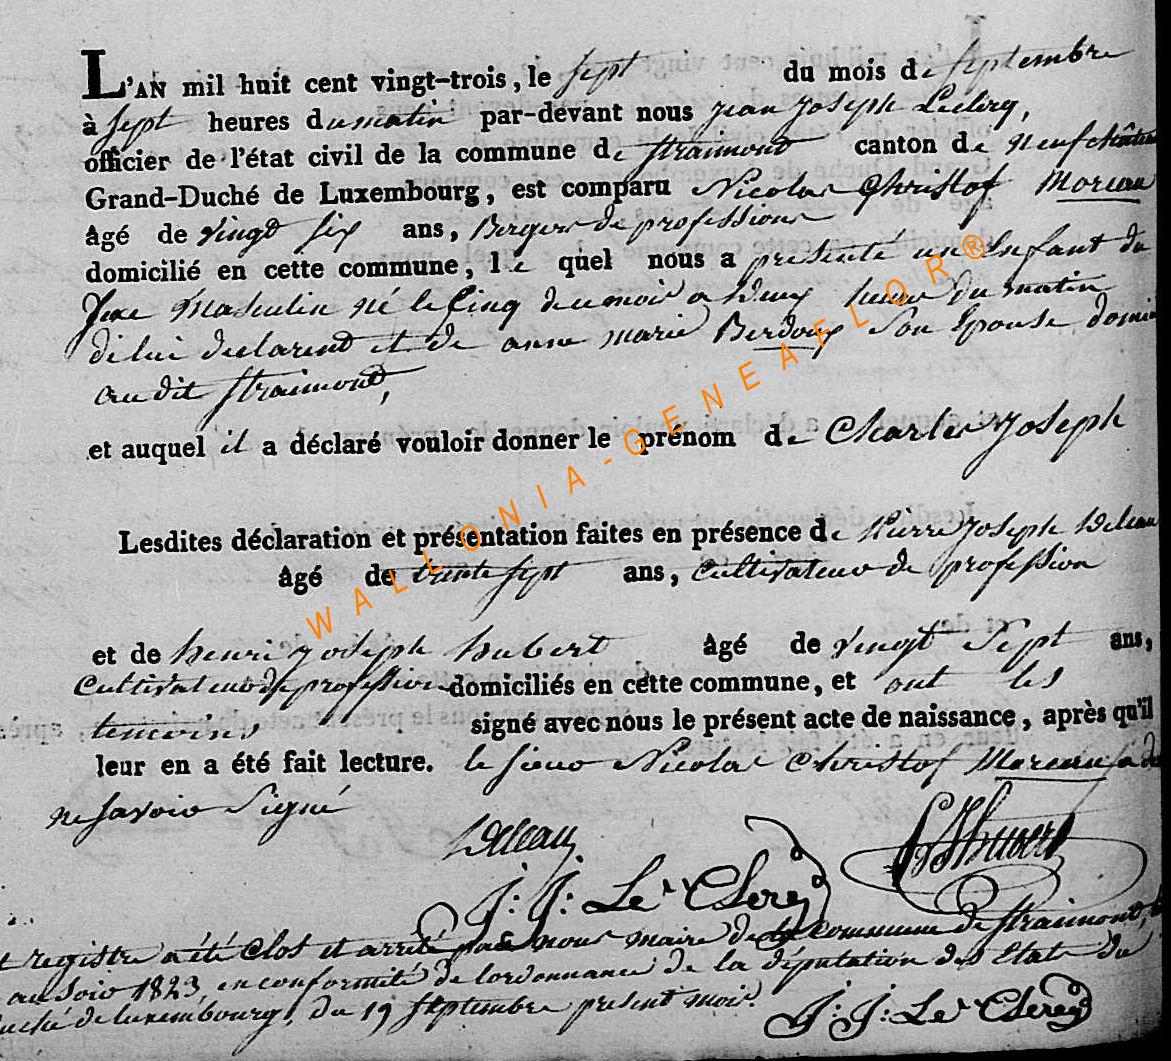 L'AN mil huit cent vingt-trois, le sept du mois de septembre
à sept heures du matin par-devant nous jean joseph Leclerq,
officier de l'état civil de la commune de straimont canton de neufchâteau
Grand-Duché de Luxembourg, est comparu Nicolas Christof Moreau
âgé de vingt six ans, Berger de profession
domicilié en cette commune, le quel nous a présenté un Enfant du
sexe Masculin né le cinq du mois a deux heures du matin
de lui declarent et de anne marie Berdoux son Epouse domi
au dit straimont,
et auquel il a déclaré vouloir donner le prénom de Charles joseph
Lesdites déclaration et présentation faites en présence de Pierre joseph Deleau
âgé de trente sept ans, cultivateur de profession
et de henri joseph hubert âgé de vingt sept ans,
Cultivateur de profession domiciliés en cette commune, et ont les
temoins signé avec nous le présent acte de naissance, après qu'il
leur en a été fait lecture. le sieur Nicolas Christof Moreau a de
ne savoir signé
Deleau
J: J: Le Clercq
registre a été Clos et arrêté par nous maire de la commune de straimont,
au soir 1823, en conformité de l'ordonnance de la députation des Etats du
duché de luxembourg, du 19 septembre present mois.
J: J: Le Clercq
WALLONIA-GENEAFLOR®